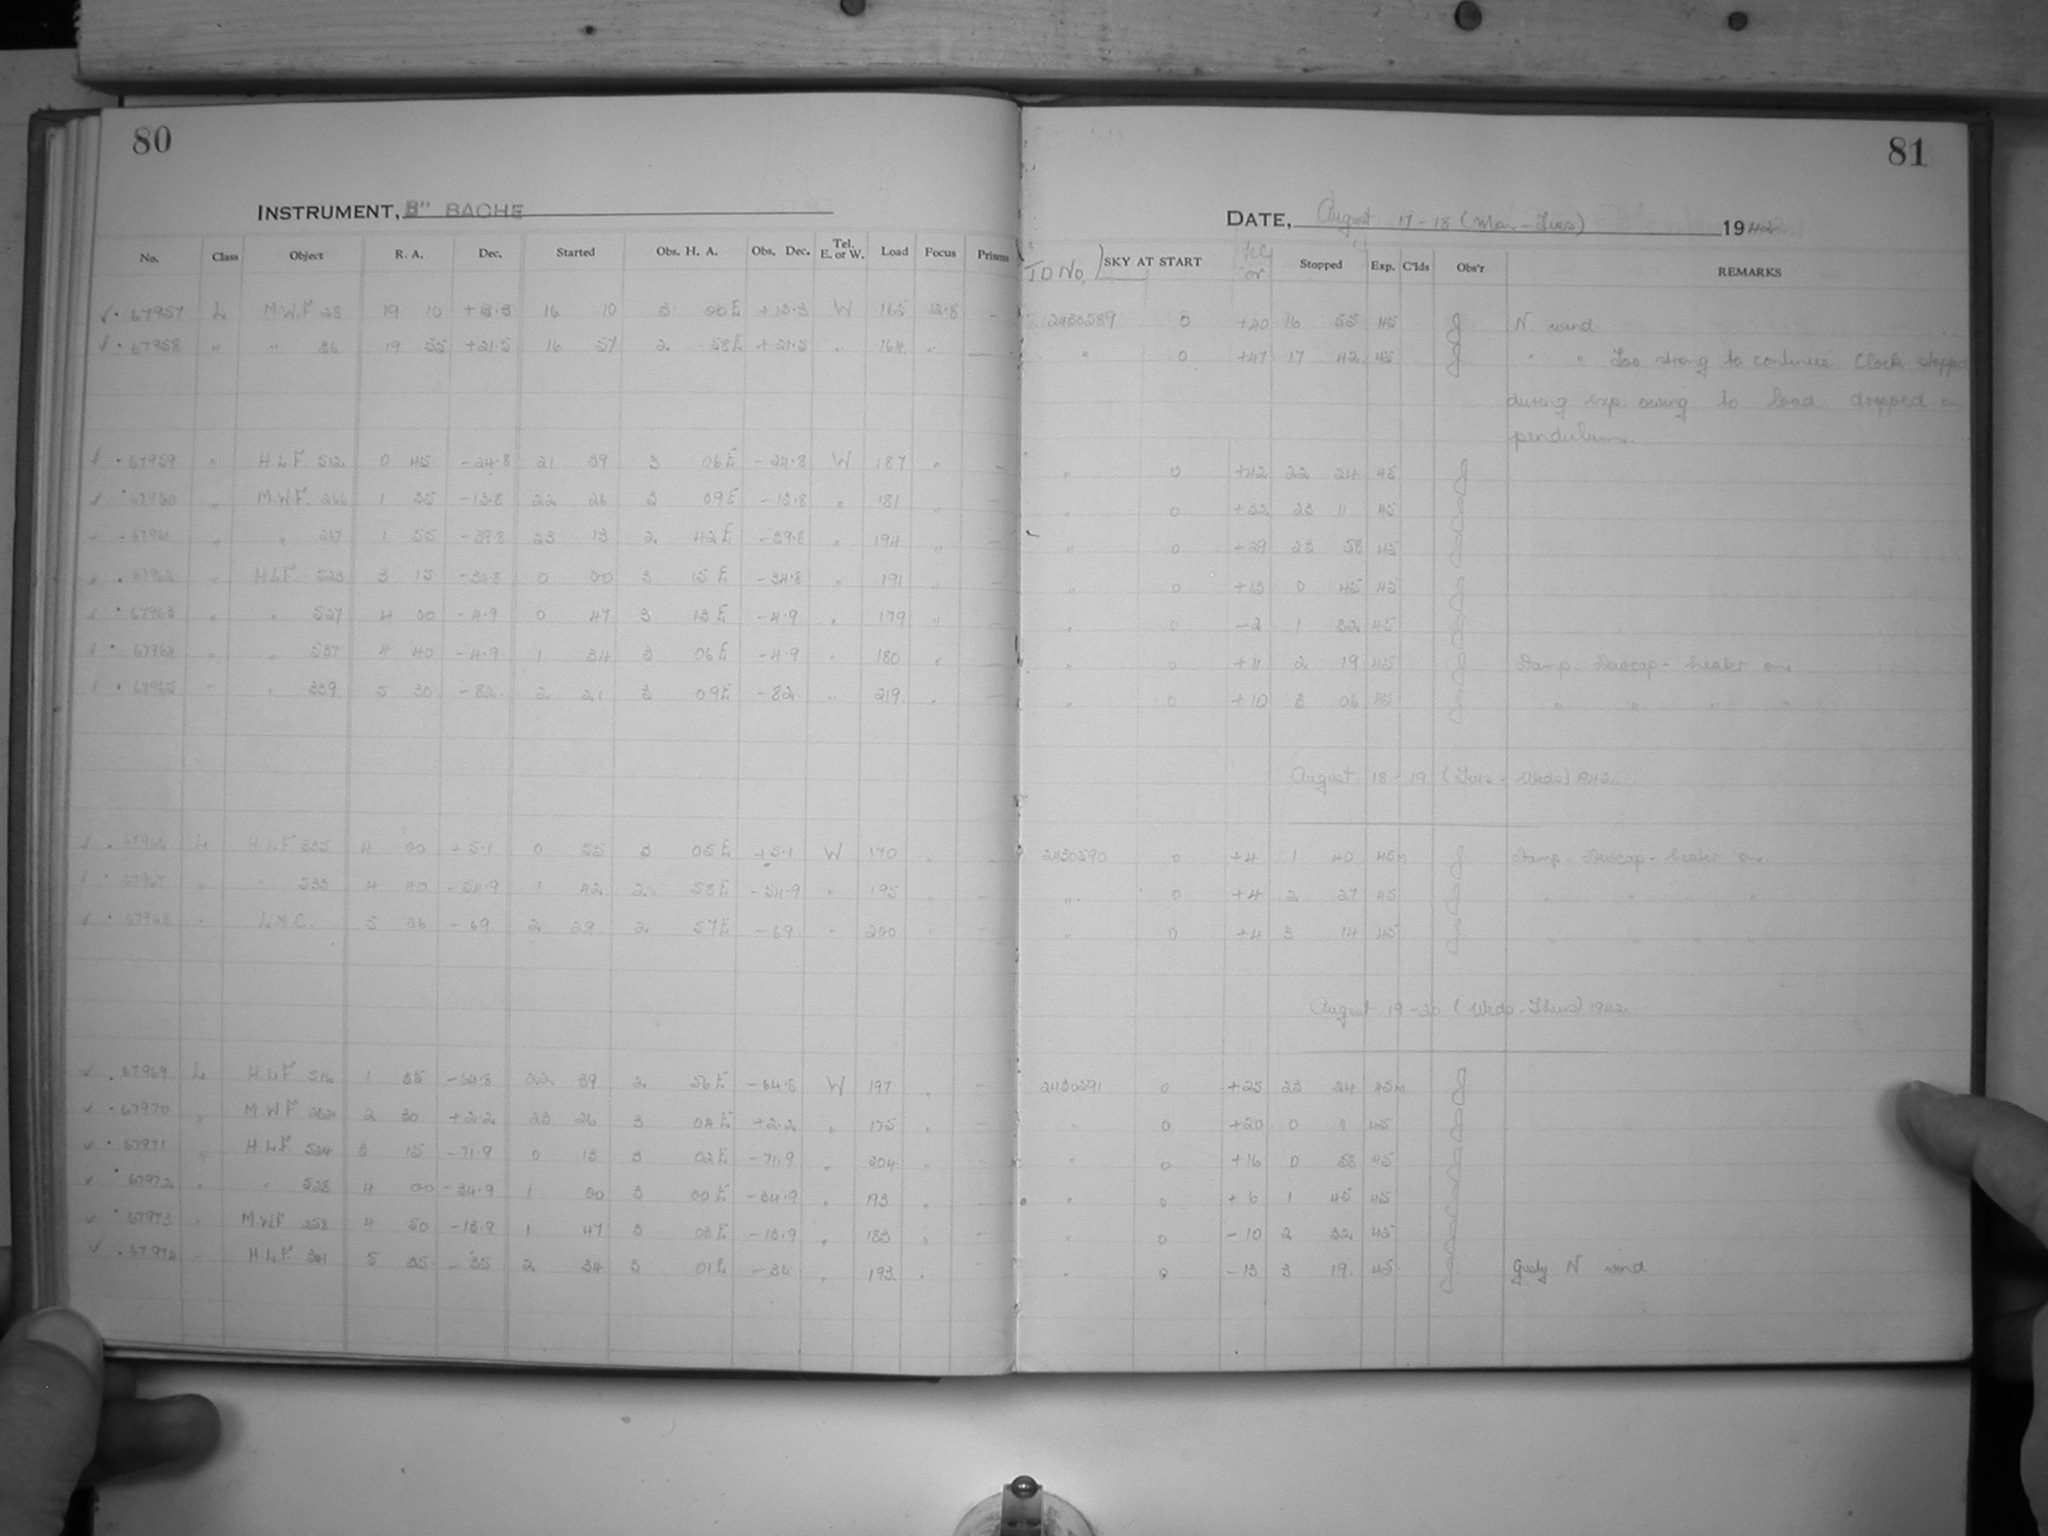 80
INSTRUMENT, 8" BACHE
No. Class Object R. A. Dec. Started Obs. H. A. Obs. Dec. Tel. E. or W. Load Focus Prisms
67957 L M.W.F 28 19 10 16 10 3 00E W 165 12.8 –
67958 " " 36 19 55 +21.5 16 57 2 58E +21.5 " 164 " –
67959 " H.L.F. 512 0 45 -24.8 21 39 3 06E -24.8 W 187 " –
67960 " M.W.F. 266 1 35 22 26 3 09E " 181 " –
67961 " " 267 1 55 -39.8 23 13 2 42E -39.8 " 194 " –
67962 " H.L.F. 523 3 15 -34.8 0 00 3 15E -34.8 " 191 " –
67963 " " 527 4 00 -4.9 0 47 3 13E -4.9 " 179 " –
67964 " " 537 4 40 -4.9 1 34 3 06E -4.9 " 180 " –
67965 " " 339 5 30 -82 2 21 3 09E -82 " 219 " –
67966 L H.L.F 4 00 +5.1 0 55 3 05E +5.1 W 170 " –
67967 " " 533 4 40 -54.9 1 42 2 58E -54.9 " 195 " –
67968 " L.M.C. 5 26 -69 2 29 2 57E -69 " 200 " –
67969 L H.L.F 516 1 35 -64.8 22 39 2 56E -64.8 W 197 " –
67970 " M.W.F. 2 30 +2.2 23 26 3 04E +2.2 " 175 " –
67971 " H.L.F 524 3 15 -71.9 0 13 3 02E -71.9 " 204 " –
67972 " " 528 4 00 -34.9 1 00 3 00E -34.9 " 193 " –
67973 " M.W.F 258 4 50 1 47 3 03E " 183 " –
67974 " H.L.F. 5 35 -35 2 34 3 01E -35 " 193 "
81
DATE, August 17-18 (Mon-Tues) 1942
JD No. SKY AT START Stopped Exp. C'lds Obs'r REMARKS
2430589 0 +40 16 55 45 N wind
" 0 +47 17 42 45 " " Too strong to continue Clock stopped
during exp. owing to load dropped on
pendulum.
" 0 +42 22 24 45
" 0 +32 23 11 45
" 0 +29 23 58 45
" 0 +13 0 45 45
" 0 -2 1 32 45
" 0 +11 2 19 45 Damp Dewcap-heater on
" 0 +10 3 06 45 " " " "
August 18-19 (Tues-Weds) 1942
2430590 0 +4 1 40 45m Damp Dewcap-heater on
" 0 +4 2 27 45 " " " "
" 0 +4 3 14 45 " " " "
August 19-20 (Weds-Thurs) 1942
2430591 0 +25 23 24 45m
" 0 +20 0 11 45
" 0 +16 0 58 45
" 0 +6 1 45 45
" 0 -10 2 32 45
" 0 -13 3 19 45 Gusty N wind